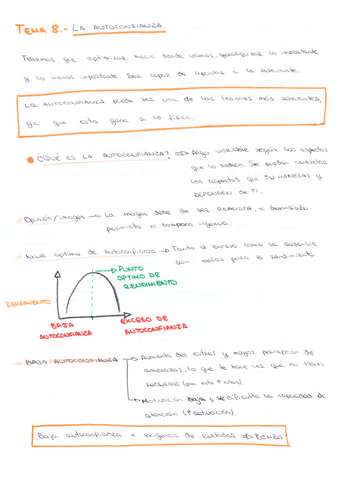 TEMA 8.- LA AUTOCONFIANZA.
Tenemos que optimizar hacia donde vamos, jerarquizar lo importante
y lo menos importante. Ser capaz de apostar a lo relevante.
LA AUTOCONFIANZA puede ser una de las lesiones más relevantes,
ya que esta gana a lo físico.
¿QUÉ ES LA AUTOCONFIANZA? ⇒ Algo variable según los aspectos
que lo rodean. Se pueden controlar
los aspectos que TU MANEJAS y
DEPENDEN de TI.
Opinión/imagen → La imagen debe de ser REALISTA, ni demasiado
pesimista ni tampoco ingenua.
Nivel optimo de Autoconfianza → Tanto el exceso como su ausencia
son malos para el rendimiento
PUNTO
OPTIMO DE
RENDIMIENTO
RENDIMIENTO
BAJA
AUTOCONFIANZA
EXCESO DE
AUTOCONFIANZA
BAJA AUTOCONFIANZA → Aumento del estrés y mayor percepción de
amenazas, lo que te hace ver que no tienes
recursos
Motivación baja y se dificulta la capacidad de
atención (↑activación)
Baja autoconfianza + exigencia de resultados ⇒ BOMBA